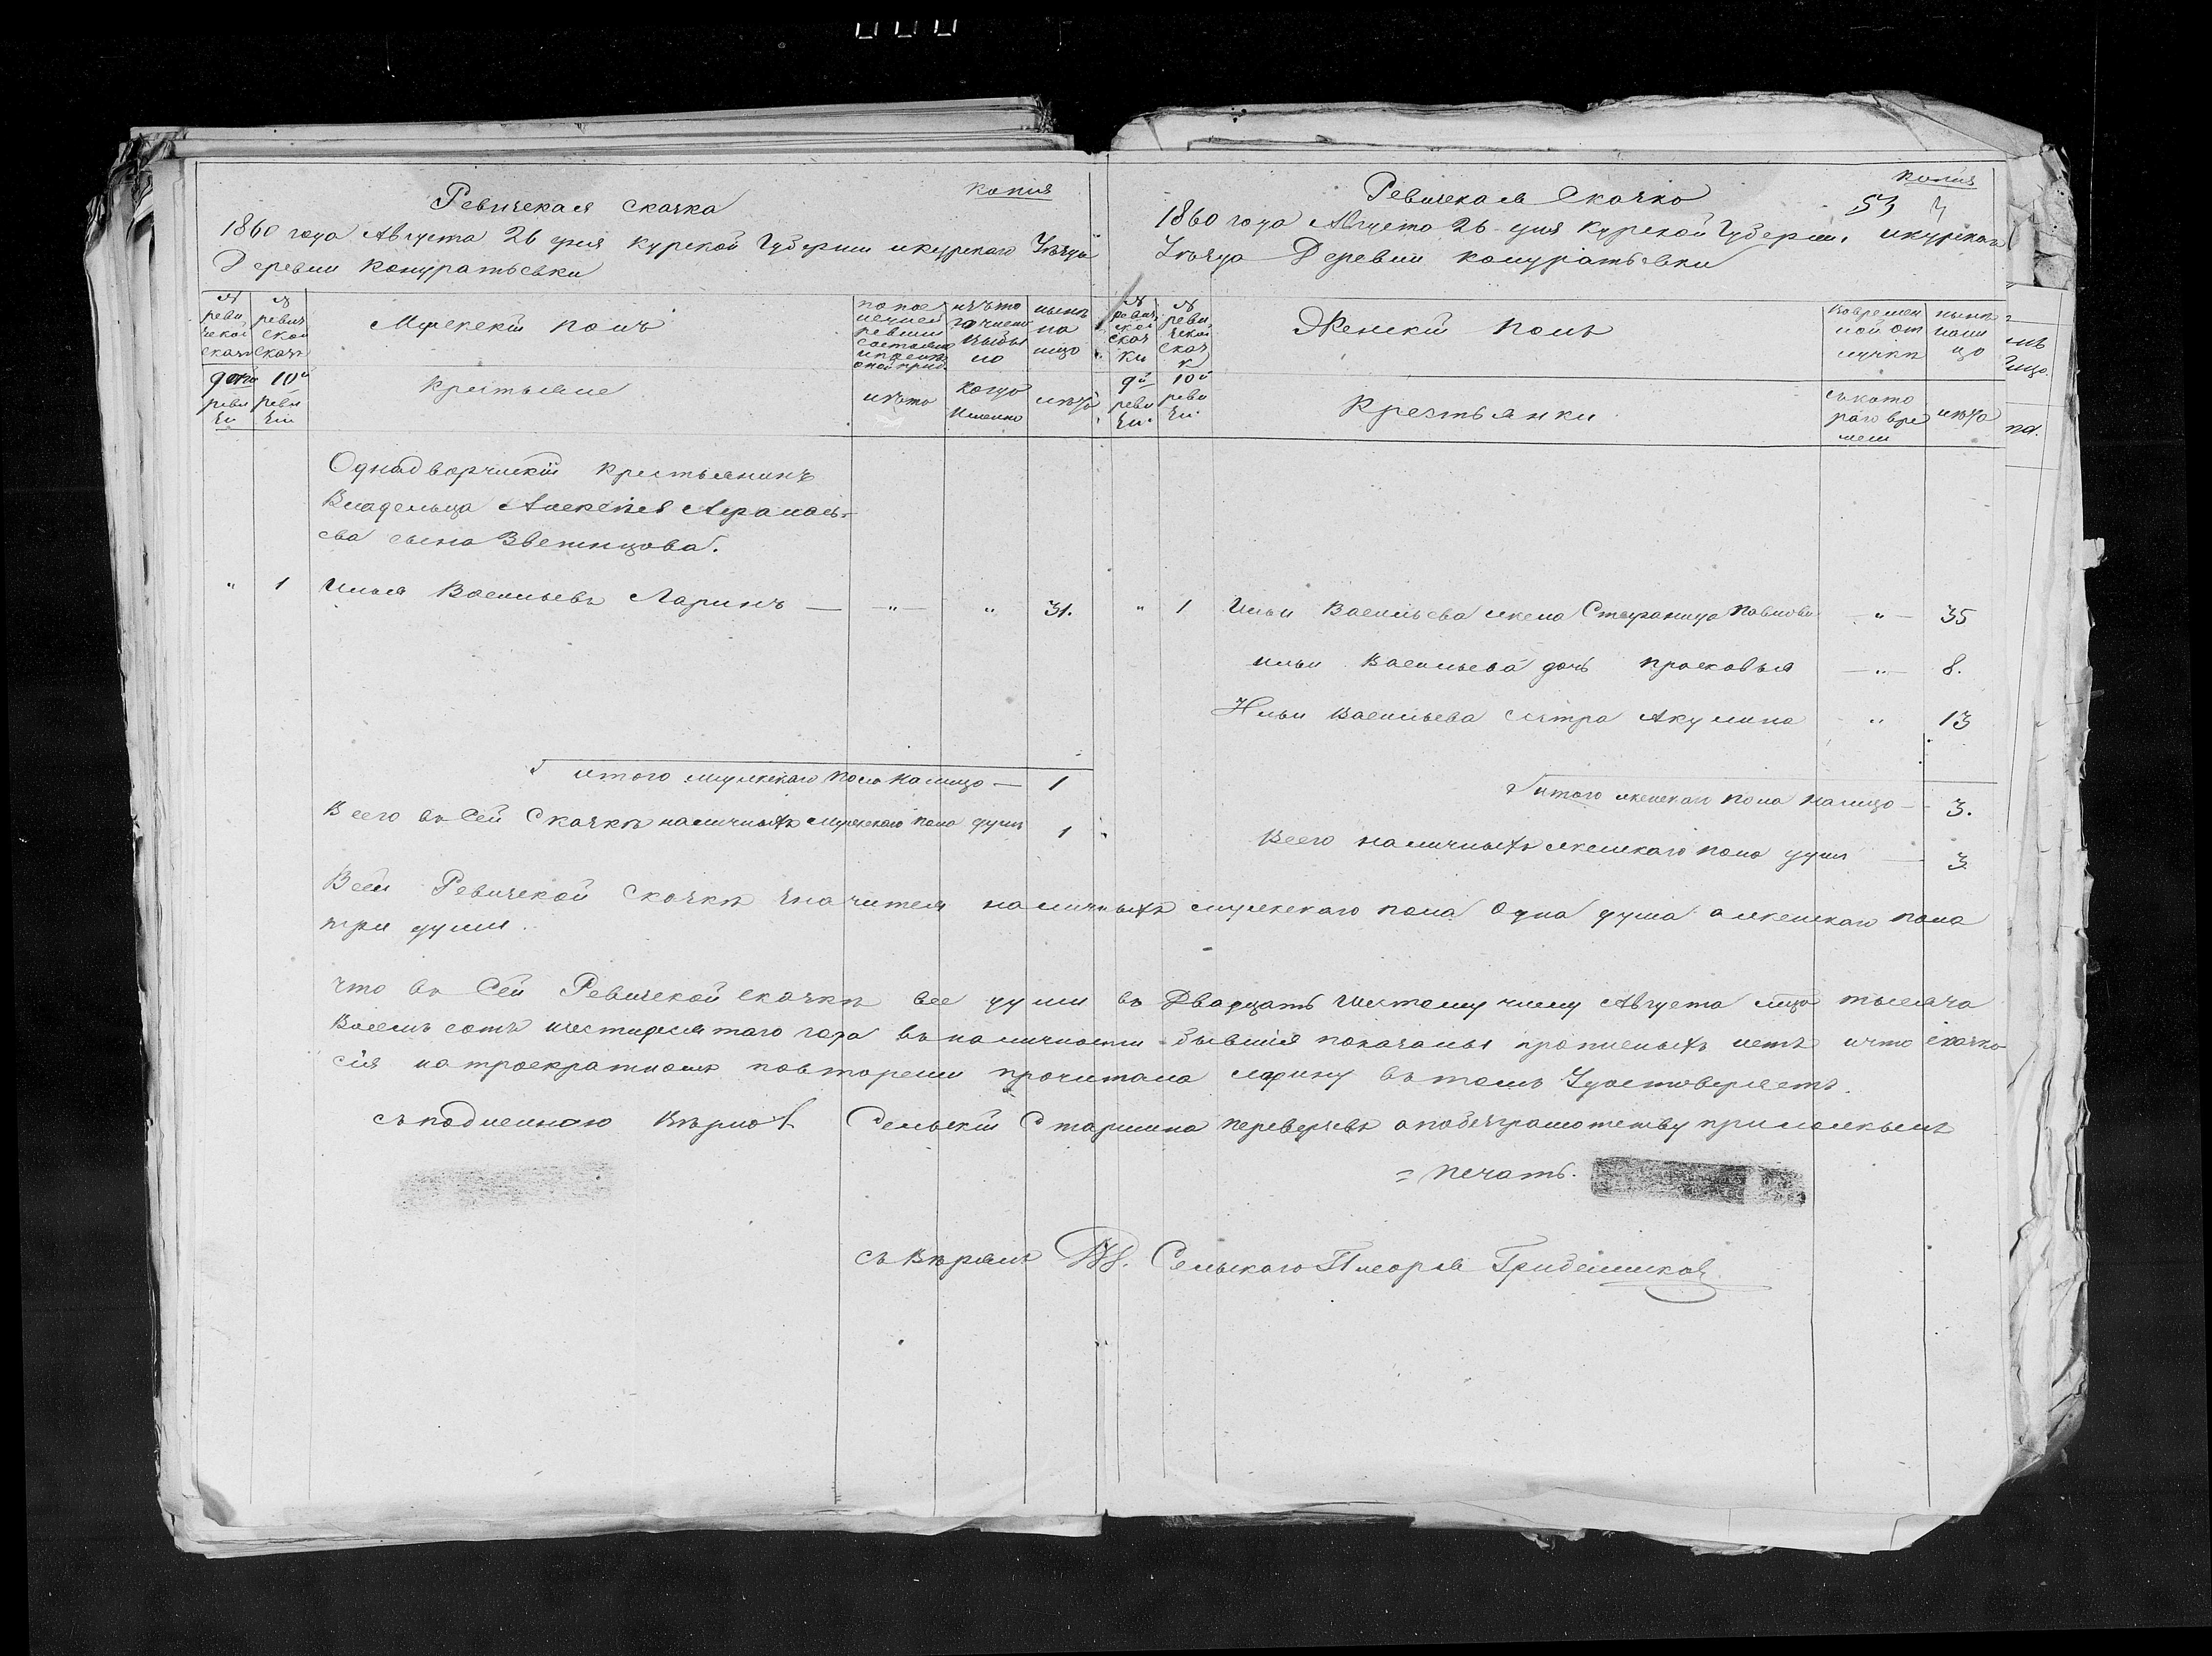 копия
Ревизская сказка
1860 года Августа 26 дня Курской Губернии икурскаго Уѣзда
Деревни Кондратьевки
№ ревизской сказк
№ ревизской сказк
Мужеский полъ
по последней ревизии состояло
изъ того числа выбыло
нынѣ на лицо
9ой ревизіи
10й ревизіи
Крестьяне
лѣта
когда именно
лѣта
Однадворчискій крестьянинъ
Владельца Алексѣя Афанась-
ева сына Звегинцова.
" 1 Илья Васильевъ Ларинъ — " " 31.
итого мужскаго пола налицо — 1
Всего въ Сей Сказкѣ наличныхъ мужескаго пола душъ 1
копия
53
Ревизская Сказка
1860 года Августа 26 дня Курской Губерніи икурскаго
Уѣзда Деревни кондратьевки
№ ревизской сказки
№ ревизской сказк
Женскій полъ
вовременной отлучкѣ
нынѣ на лицо
9й ревизіи.
10й ревизіи.
Крестьянки
съ котораго времени
лѣта
" 1 Ильи Васильева жена Стефанида Павлова — " — 35
Ильи Васильева дочь Прасковья — " — 8.
Ильи Васильева сестра Акулина " 13
итого женскаго пола налицо — 3.
Всего наличныхъ женскаго пола душъ — 3
Всей Ревизской Сказкѣ значится наличныхъ мужескаго пола одна душа а женскаго пола
три души.
что въ Сей Ревизской сказкѣ все души въ Двадцать шестому числу Августа мца тысяча
Восемь сотъ шестидесятаго года въ наличности бывшія показаны прописныхъ нетъ ичто сказка
сія на троекратномъ повторении прочитана Ларину въ томъ Удостоверяетъ.
съподленною Вѣрно Сельскій Старшина Переверзевъ апобезграмотству приложилъ
= печать.
съ Вѣрялъ Сельскаго Писаря